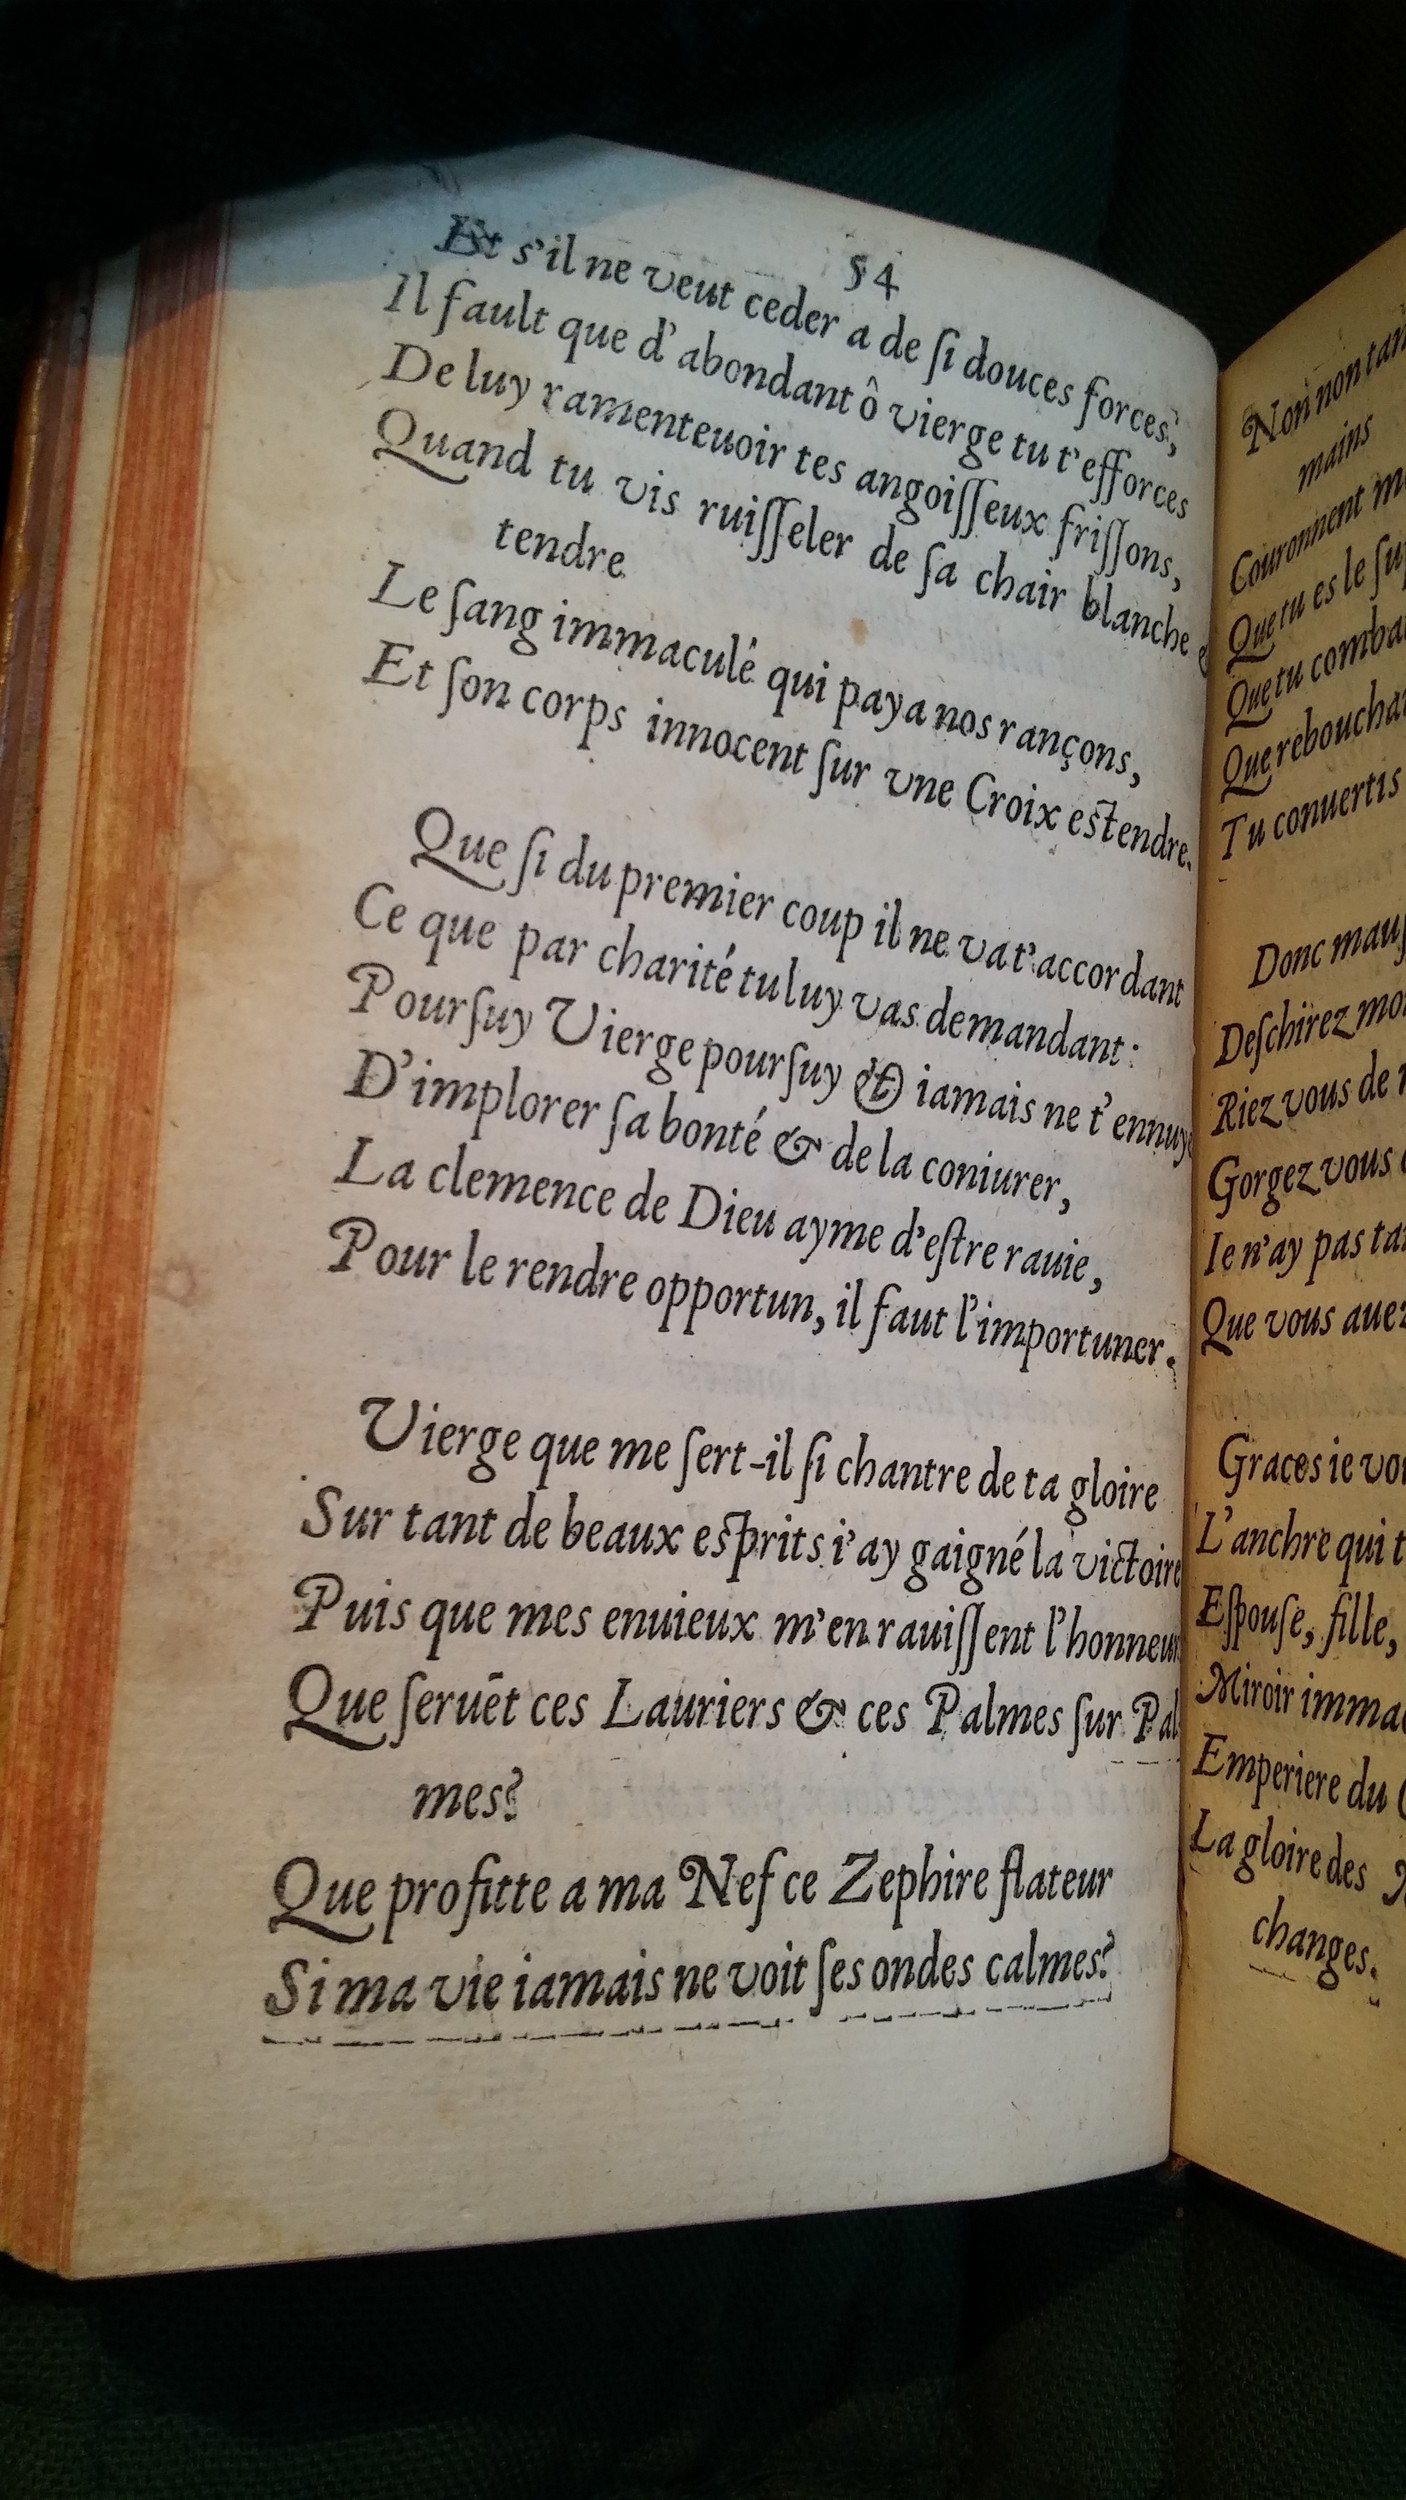 54
Et s'il ne veut ceder a de ſi douces forces,
Il fault que d'abondant ô vierge tu t'efforces
De luy ramenteuoir tes angoiſſeux friſſons,
Quand tu vis ruiſſeler de ſa chair blanche &
tendre
Le ſang immaculé qui paya nos rançons,
Et ſon corps innocent ſur vne Croix estendre.
Que ſi du premier coup il ne va t'accordant
Ce que par charité tu luy vas demandant:
Pourſuy Vierge pourſuy & iamais ne t'ennuye
D'implorer ſa bonté & de la coniurer,
La clemence de Dieu ayme d'eſtre rauie,
Pour le rendre opportun, il faut l'importuner.
Vierge que me ſert-il ſi chantre de ta gloire
Sur tant de beaux esprits i'ay gaigné la victoire
Puis que mes enuieux m'en rauiſſent l'honneur
Que ſeruēt ces Lauriers & ces Palmes ſur Pal
mes?
Que profitte a ma Nef ce Zephire flateur
Si ma vie iamais ne voit ſes ondes calmes?
Non non tan
mains
Couronnent
Que tu es le
Que tu
Que
Tu conuertis
Donc
Deſchirez
Riez vous de
Gorgez vous
Ie n'ay pas
Que vous auez
Graces ie
L'anchre qui
Eſpouſe, fille,
Miroir
Emperiere du
La gloire des
changes.